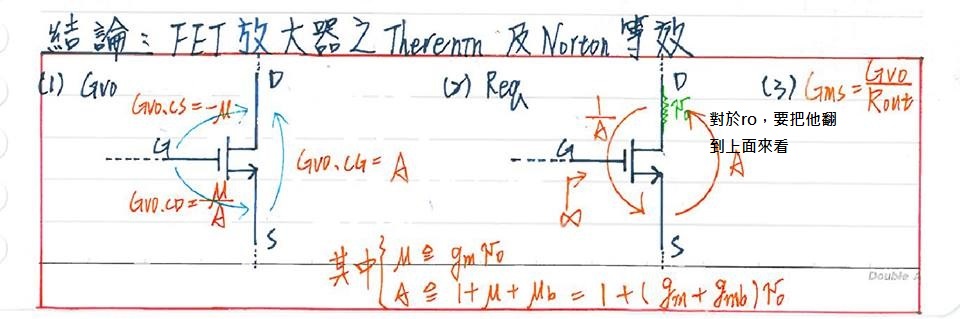 結論：FET 放大器之 Thevenin 及 Norton 等效
(1) Gvo
D
Gvo.cs = -μ
G
Gvo.CG = A
Gvo.CD = μ/A
S
(2) Req
D
ro
對於ro，要把他翻
到上面來看
1/A
G
A
∞
S
(3) Gms = Gvo/Rout
其中 { μ ≜ gm ro
A ≜ 1 + μ + μb = 1 + (gm + gmb) ro
Double A